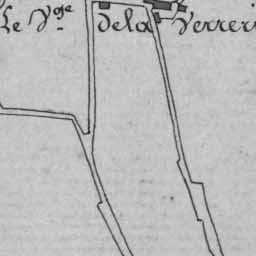 Le V.ge de la Verreri